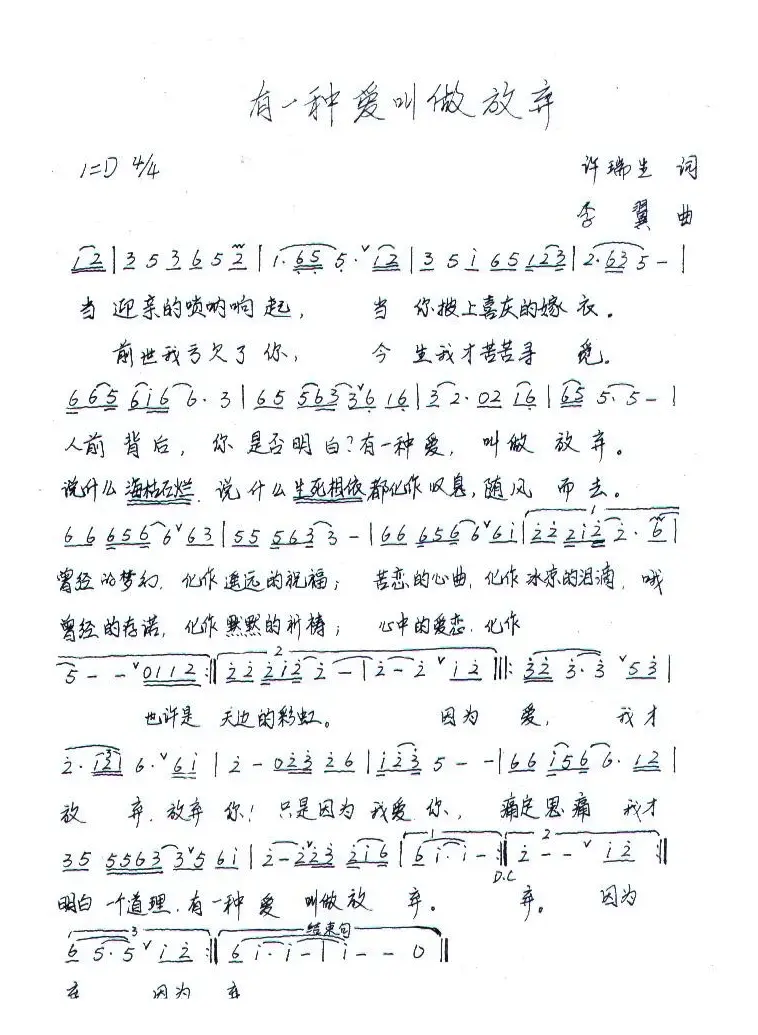 有一种爱叫做放弃
1=D 4/4
许瑞生 词
李翼 曲
i2|3 5 3 6 5 2|1·65 5·ˇi2|3 5 i 65 123|2·63 5 -|
当 迎亲的唢呐响起， 当 你披上喜庆的嫁衣。
前世我亏欠了你， 今生我才苦苦寻觅。
665 6i6 6·3|65 5633ˇ6 16|3 2·02 i6|65 5·5 -|
人前背后，你是否明白?有一种爱，叫做放弃。
说什么海枯石烂，说什么生死相依都化作叹息，随风而去。
66 656 6ˇ63|55 563 3 -|66 656 6ˇ6i|1 22 2i2 2·6|
曾经的梦幻，化作遥远的祝福； 苦恋的心曲，化作冰凉的泪滴，哦
曾经的存诺，化作默默的祈祷； 心中的爱恋，化作
5 - - ˇ0112:||2 22 2i2 2 -|2 - 2 ˇi2||:32 3·3 ˇ53|
也许是 天边的彩虹。 因为 爱， 我才
2·i23 6·ˇ6i|2 - 023 26|i23 5 - -|66 i56 6·12|
放 弃，放弃 你! 只是因为 我爱你， 痛定思痛 我才
35 5563 3ˇ5 6i|2 - 223 2i6|1 6 i·i -:||2 2 - - ˇi2:||
D.C
明白一个道理，有一种爱 叫做放弃。 弃。 因为
3
6 5·5 ˇi 2:||结束句 6 i·i - |i - - 0||
弃 因为 弃